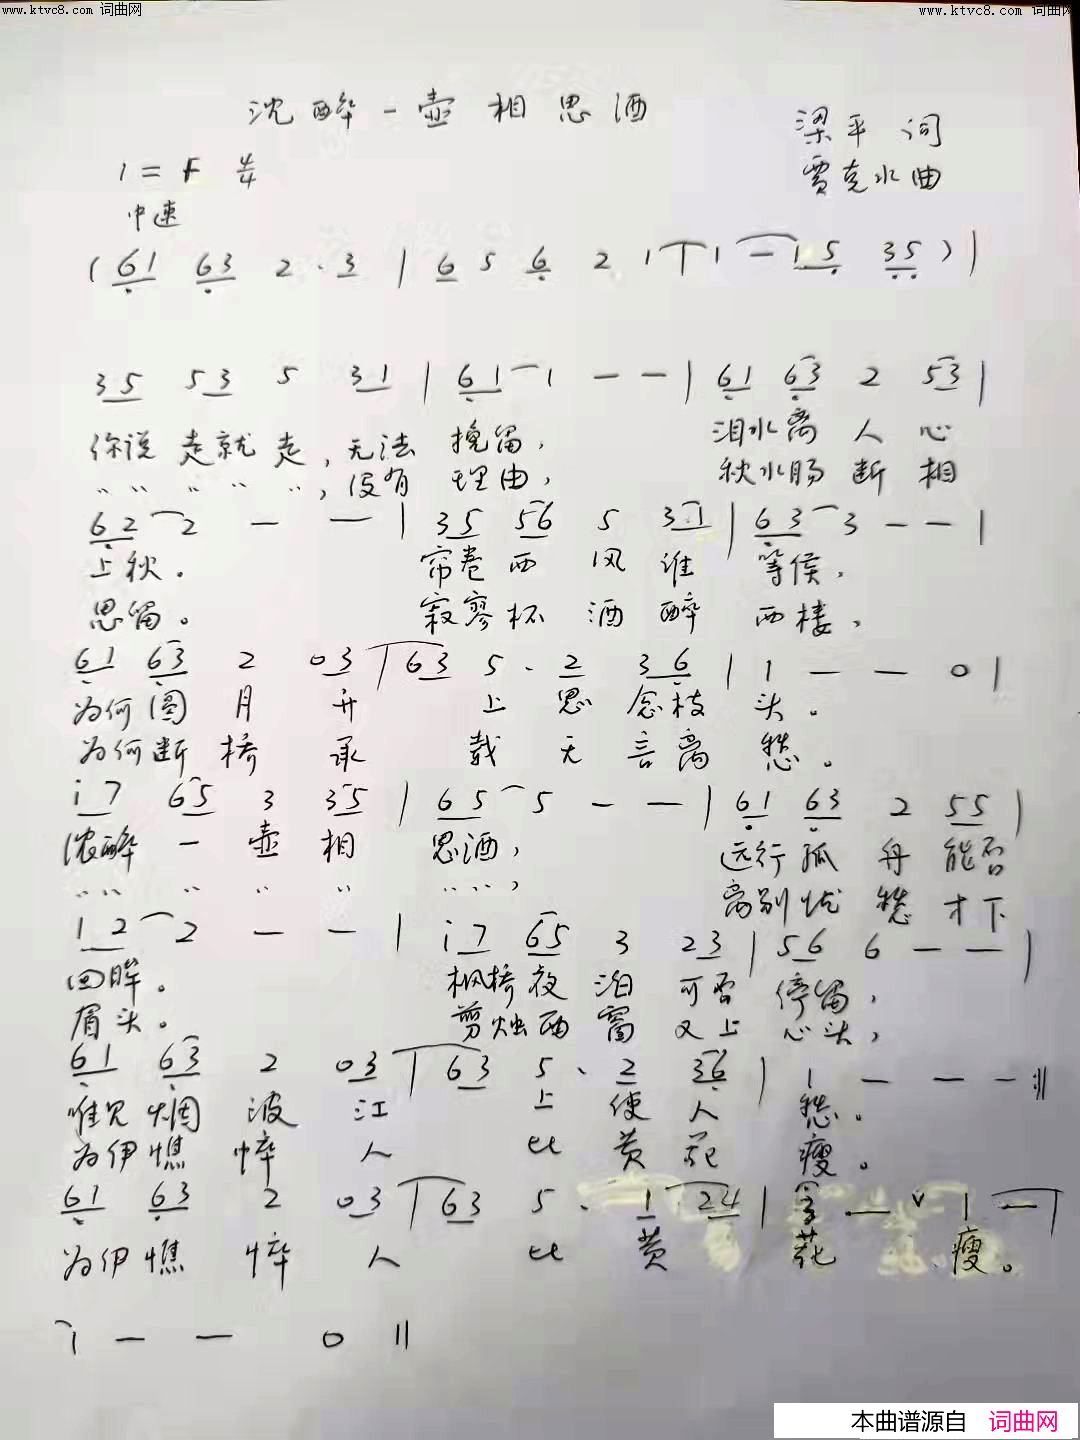 www.ktvc8.com 词曲网
www.ktvc8.com 词曲网
沈醉一壶相思酒
梁平 词
贾克水曲
1=F 4/4
中速
(61 63 2·3 | 6 5 6 2 1 | 1 — 15 35) |
35 53 5 31 | 61 1 — — | 61 63 2 53 |
你说走就走，无法挽留， 泪水离人心
〃〃〃〃〃，没有理由， 秋水肠断相
62 2 — — | 35 56 5 31 | 63 3 — — |
上秋。 帘卷西风谁等侯，
思留。 寂寥杯酒醉西楼，
61 63 2 03 | 63 5· 2 36 | 1 — — 0 |
为何圆月升上思念枝头。
为何断桥承载无言离愁。
i7 65 3 35 | 65 5 — — | 61 63 2 55 |
浓醉一壶相思酒， 远行孤舟能否
〃〃〃〃〃〃〃， 离别忧愁才下
12 2 — — | i7 65 3 23 | 56 6 — — |
回眸。 枫桥夜泊可否停留，
眉头。 剪烛西窗又上心头，
61 63 2 03 | 63 5· 2 36 | 1 — — — :||
唯见烟波江上使人愁。
为伊憔悴人比黄花瘦。
61 63 2 03 | 63 5· 1 24 | — ∨ 1 — |
为伊憔悴人比黄花瘦。
1 — — 0 ||
本曲谱源自 词曲网